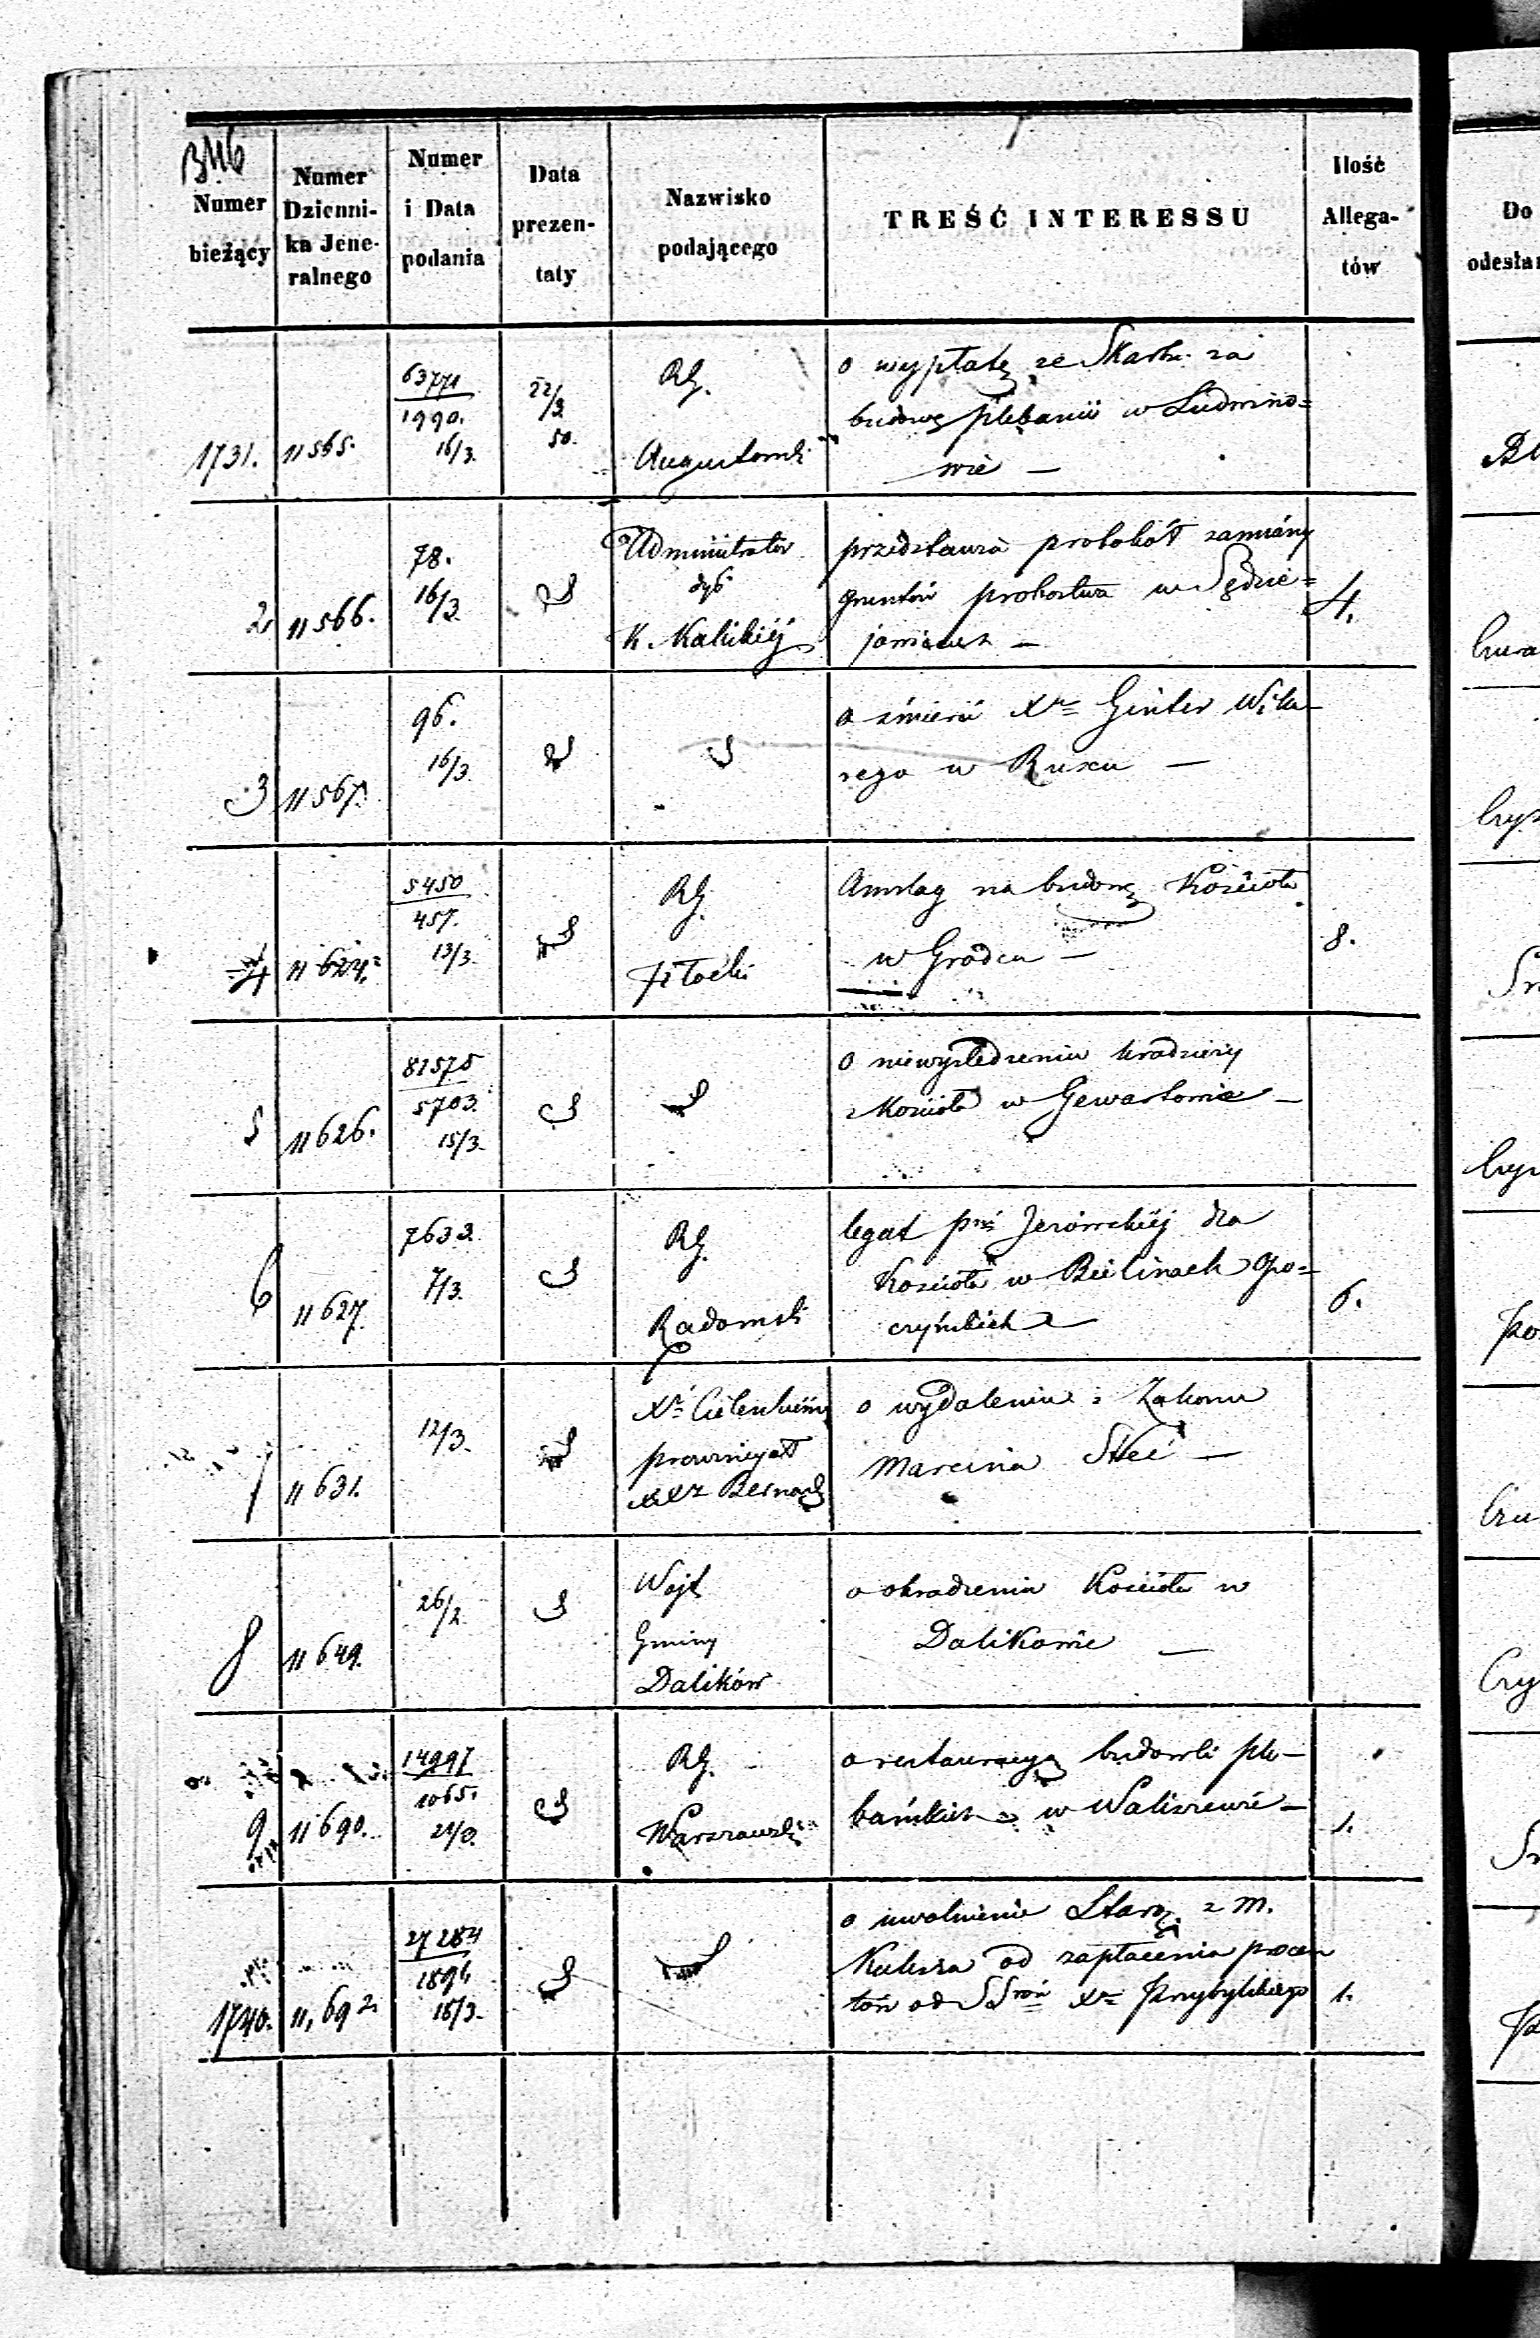 B46
Numer bieżący
Numer Dzienni-ka Jene-ralnego
Numer i Data podania
Data prezen-taty
Nazwisko podającego
TREŚĆ INTERESSU
Ilość Allega-tów
Do
1731. 11565.
63771
1990.
16/3.
22/3
50.
RG.
Augustowski
o wypłatę ze Skarbu za
budowę plebanii w Ludwino=
wie —
2. 11566.
78.
16/3
Administrator
dyć
K. Kaliskiéj
przedstawia protokół zamiány
gruntów probostwa w Sędzie=
jowicach —
4.
3 11567.
96.
16/3.
o śmierci Xa Ginter Wika-
rego w Rusku —
4 11624.
5450
457.
13/3.
RG.
Płocki
Anszlag na budowę Kościoła
w Grodcu —
8.
5 11626.
81575
5703.
15/3.
o niewyśledzeniu kradzieży
z Kościoła w Gewartowie —
6 11627.
7633.
7/3.
RG.
Radomski
legat pni Jerowskiéj dla
Kościoła w Bielinach Opo=
czyńskich —
6.
7 11631.
12/3.
prowincyał
XXz Bernard
o wydaleniu z Zakonu
Marcina Steć —
8 11649.
26/2.
Wójt
Gminy
Dalików
o okradzeniu Kościoła w
Dalikowie —
9 11690.
14997
1065.
21/3.
RG.
Warszawski
o restauracyą budowli ple-
bańskich w Waliszewie —
1.
1740. 11,692
27284
1896
16/3.
o uwolnienie Staroz. z m.
od zapłacenia procen
tów od SSrów Xa Przybylskiego
1.